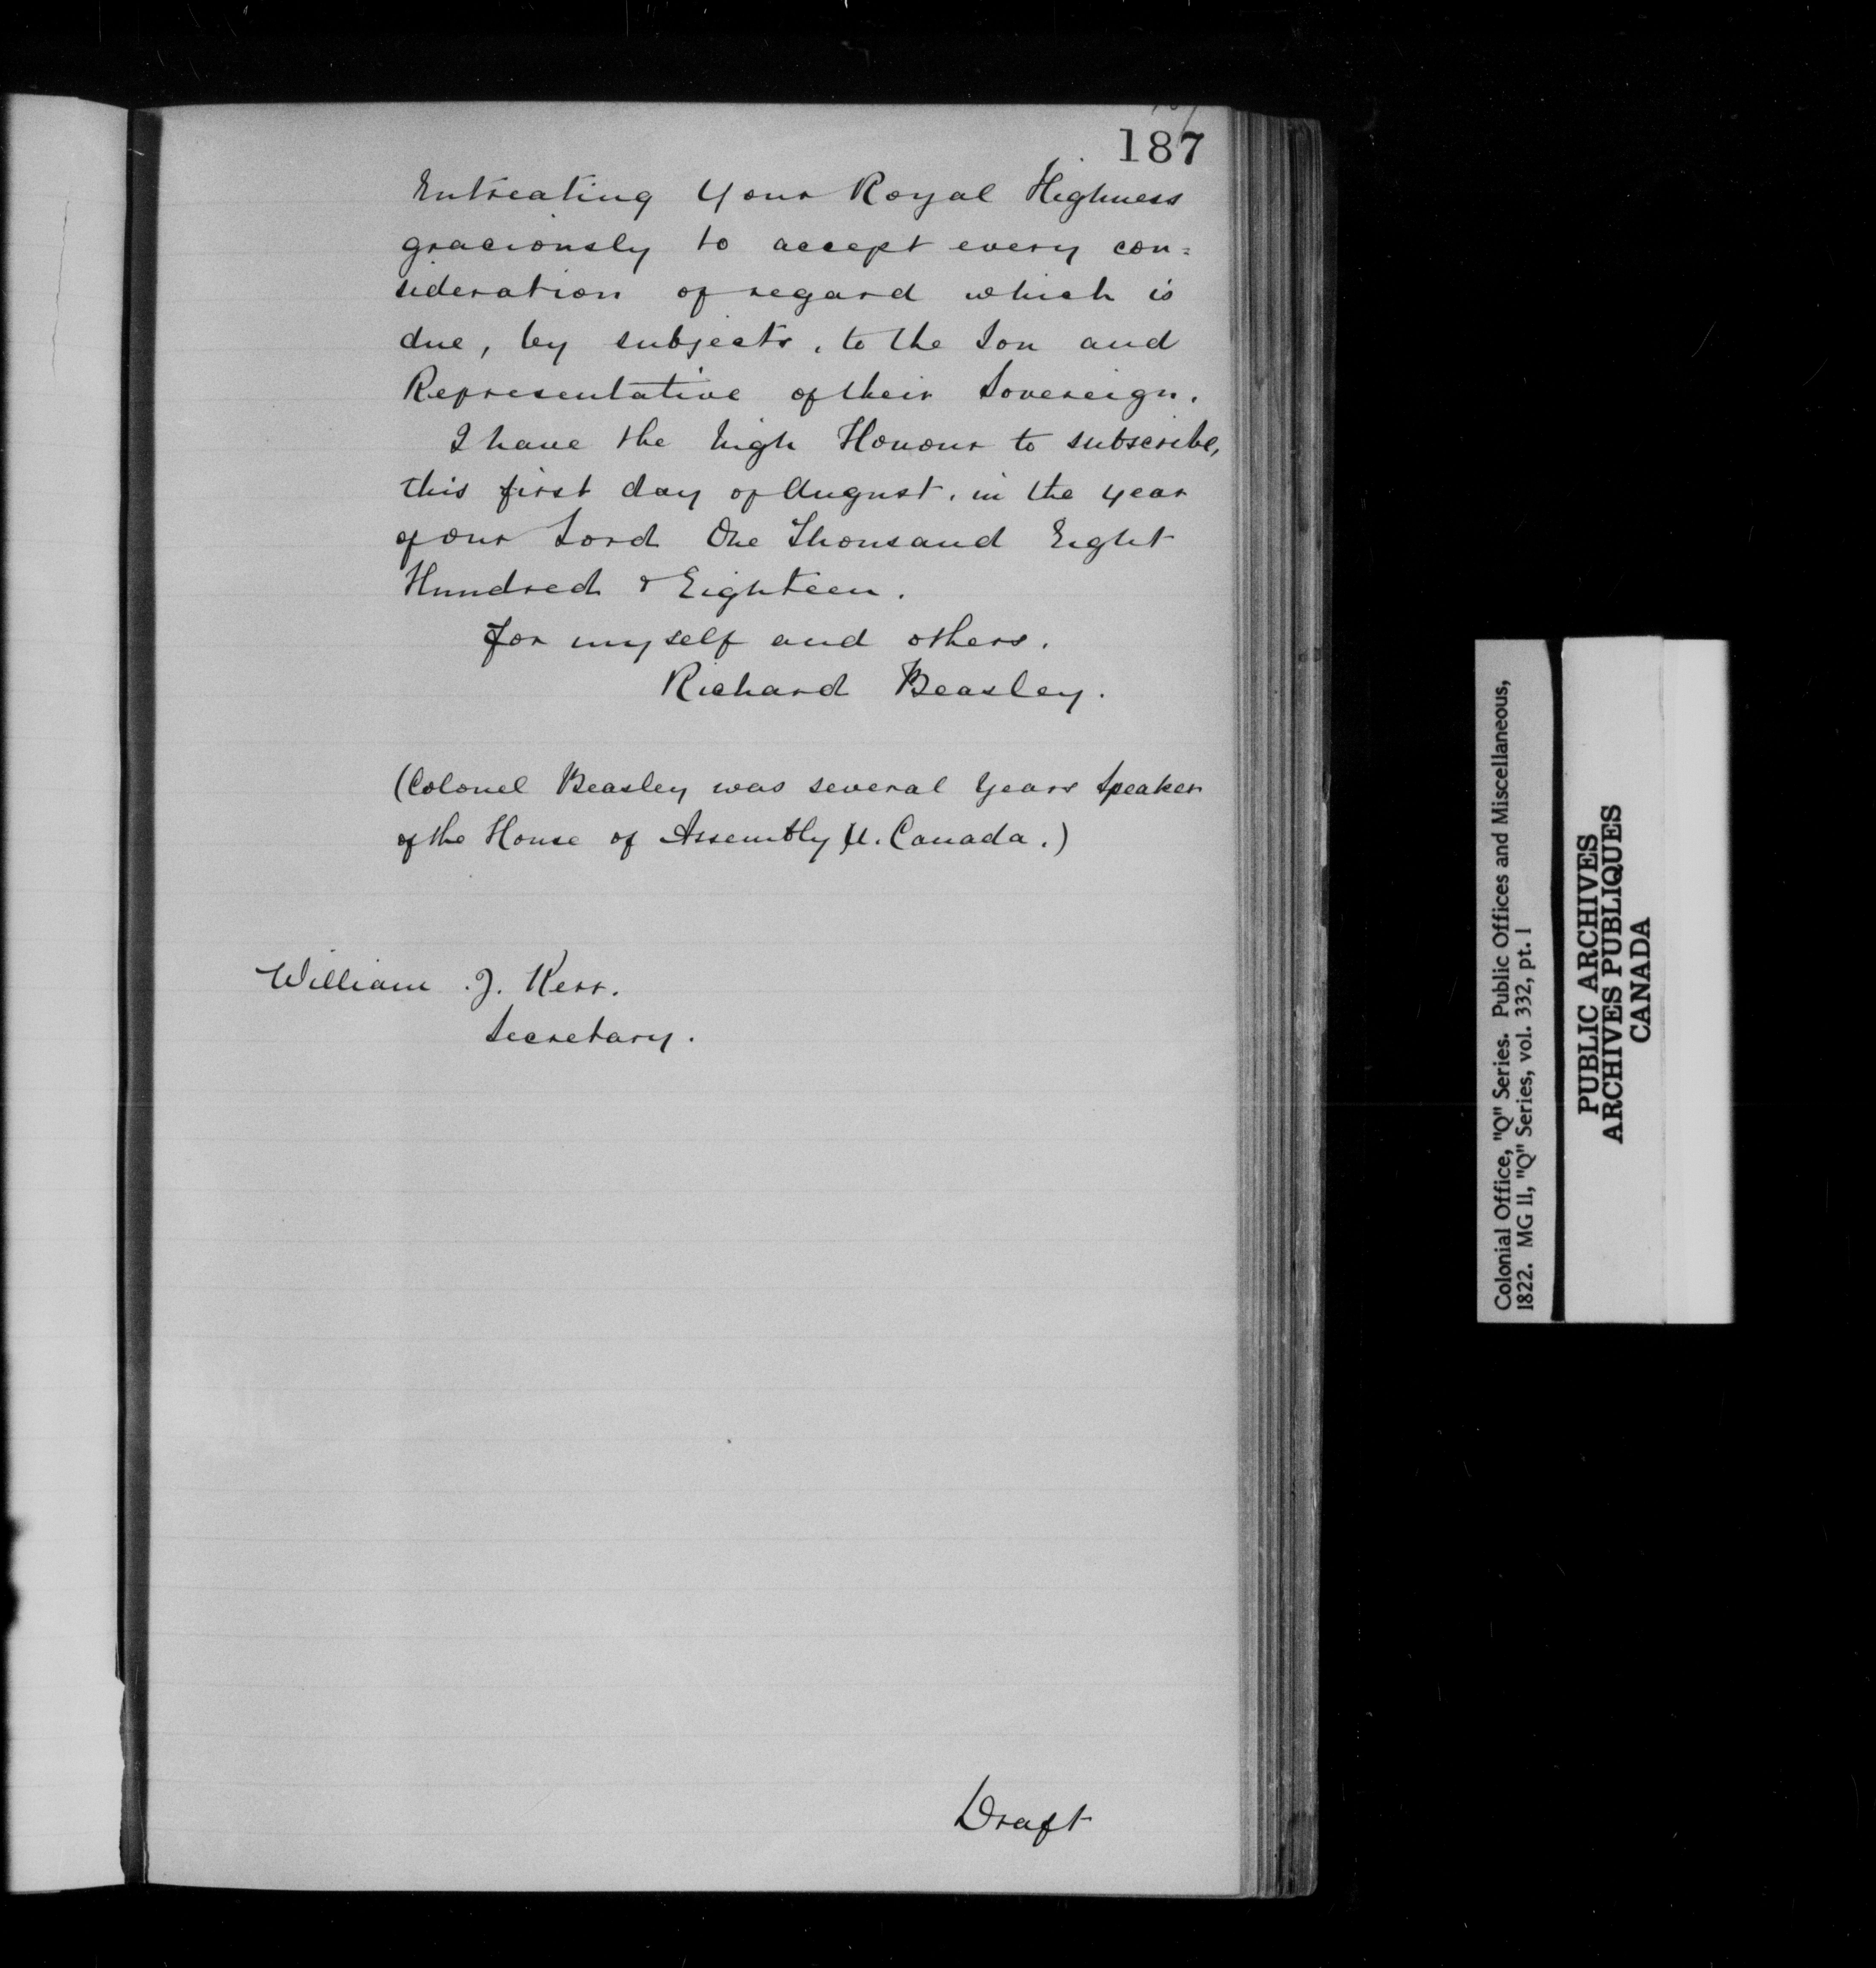 187
Entreating Your Royal Highness
graciously to accept every con=
sideration of regard which is
due, by subjects, to the Son and
Representative of their Sovereign.
I have the high Honour to subscribe,
this first day of August, in the year
of our Lord One Thousand Eight
Hundred & Eighteen.
For myself and others.
Richard Beasley.
(Colonel Beasley was several Years Speaker
of the House of Assembly U. Canada.)
William J. Kerr.
Secretary.
Draft
Colonial Office, "Q" Series. Public Offices and Miscellaneous,
1822. MG 11, "Q" Series, vol. 332, pt. 1
PUBLIC ARCHIVES
ARCHIVES PUBLIQUES
CANADA